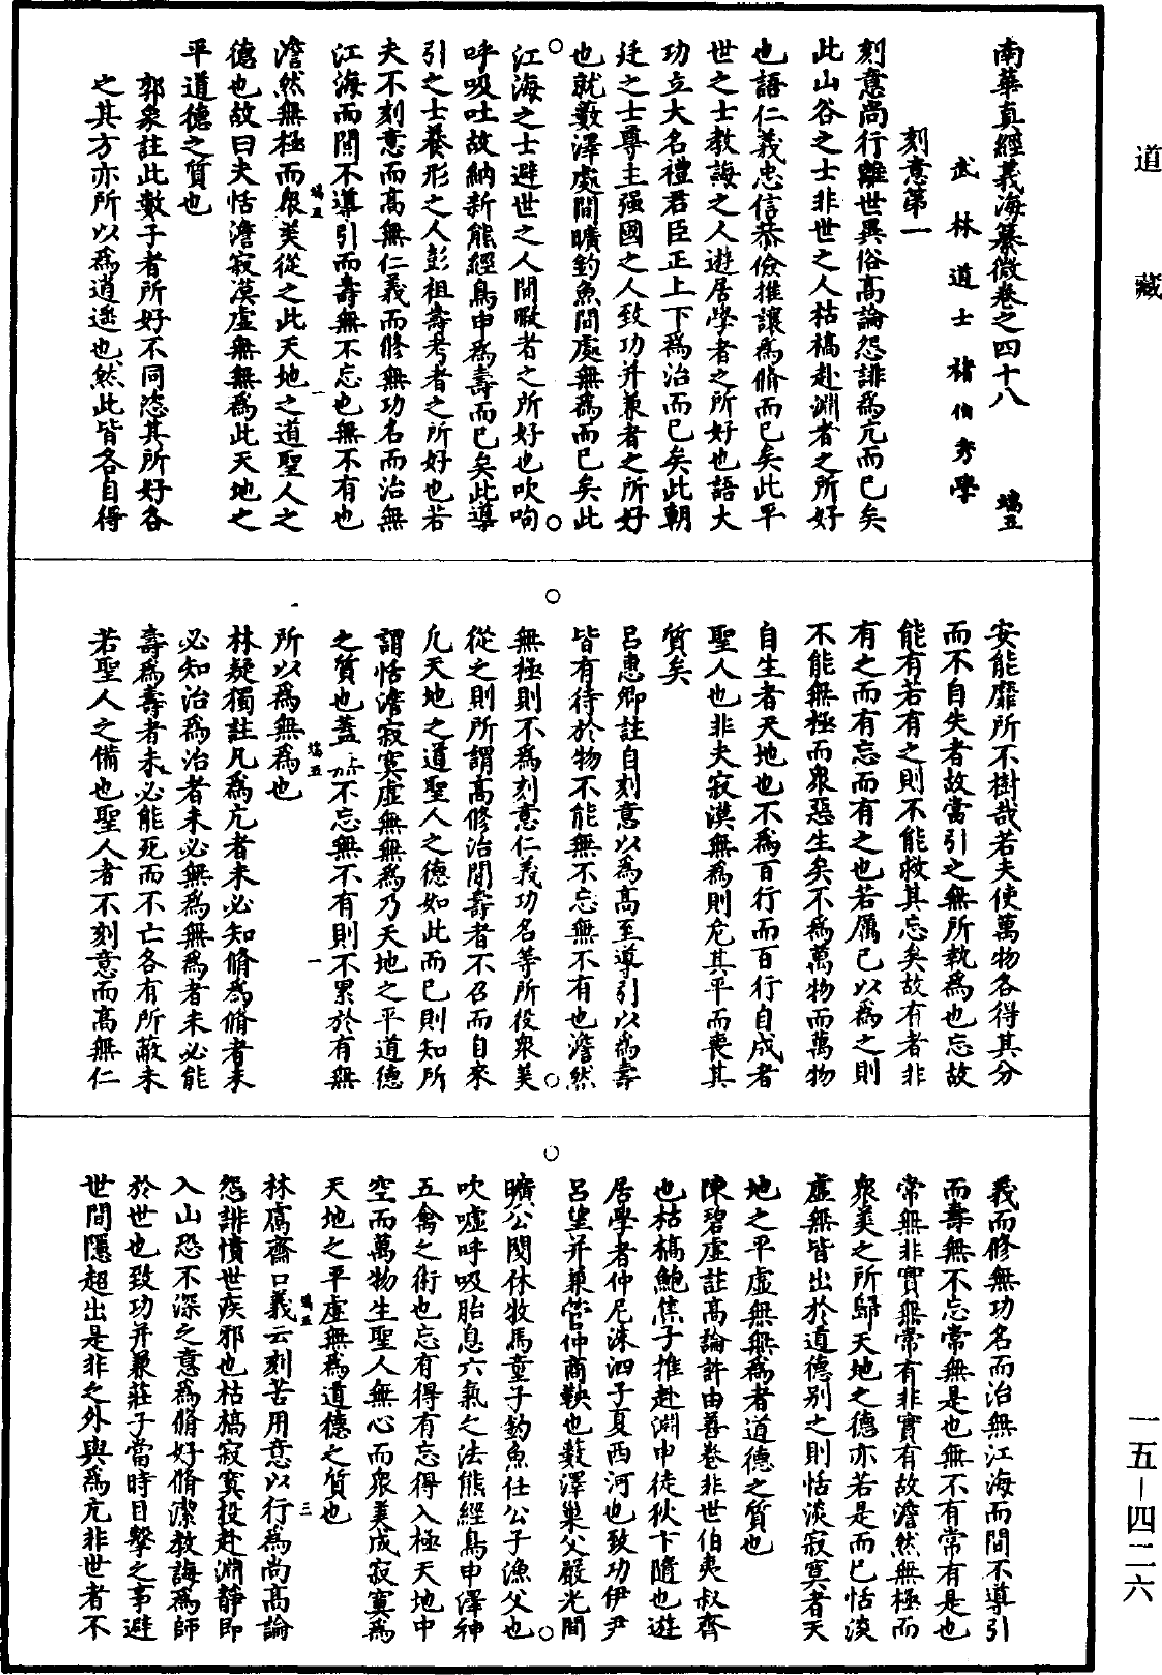 道藏
南華真經義海纂微卷之四十八　端五
武林道士褚伯秀學
刻意第一
刻意尚行離世異俗高論怨誹為亢而已矣
此山谷之士非世之人枯槁赴淵者之所好
也語仁義忠信恭儉推讓為脩而已矣此平
世之士教誨之人遊居學者之所好也語大
功立大名禮君臣正上下為治而已矣此朝
廷之士尊主强國之人致功并兼者之所好
也就藪澤處間曠釣魚間處無為而已矣此
江海之士避世之人間暇者之所好也吹呴
呼吸吐故納新熊經鳥申為壽而已矣此導
引之士養形之人彭祖壽考者之所好也若
夫不刻意而高無仁義而脩無功名而治無
江海而間不導引而壽無不忘也無不有也
端五　一
澹然無極而衆美從之此天地之道聖人之
德也故曰夫恬澹寂漠虛無無為此天地之
平道德之質也
郭象註此數子者所好不同恣其所好各
之其方亦所以為逍遥也然此皆各自得
安能靡所不樹哉若夫使萬物各得其分
而不自失者故當引之無所執為也忘故
能有若有之則不能救其忘矣故有者非
有之而有忘而有之也若厲已以為之則
不能無極而衆惡生矣不為萬物而萬物
自生者天地也不為百行而百行自成者
聖人也非夫寂漠無為則危其平而喪其
質矣
呂惠卿註自刻意以為高至導引以為壽
皆有待於物不能無不忘無不有也澹然
無極則不為刻意仁義功名等所役衆美
從之則所謂高修治間壽者不召而自來
凡天地之道聖人之德如此而已則知所
謂恬澹寂寞虛無無為乃天地之平道德
之質也蓋不忘無不有則不累於有無
端五　一
所以為無為也
林疑獨註凡為亢者未必知脩為脩者未
必知治為治者未必無為無為者未必能
壽為壽者未必能死而不亡各有所蔽未
若聖人之備也聖人者不刻意而高無仁
義而修無功名而治無江海而間不導引
而壽無不忘常無是也無不有常有是也
常無非實無常有非實有故澹然無極而
衆美之所歸天地之德亦若是而已恬淡
虛無皆出於道德别之則恬淡寂寞者天
地之平虛無無為者道德之質也
陳碧虛註高論許由善卷非世伯夷叔齊
也枯槁鮑焦子推赴淵申徒狄卞隨也遊
居學者仲尼洙泗子夏西河也致功伊尹
呂望并兼管仲商鞅也藪澤巢父嚴光間
曠公閱休牧馬童子釣魚任公子漁父也
吹噓呼吸胎息六氣之法熊經鳥申澤神
五禽之術也忘有得有忘得入極天地中
空而萬物生聖人無心而衆美成寂寞為
天地之平虛無為道德之質也
端五　三
林鬳齋口義云刻苦用意以行為尚高論
怨誹憤世疾邪也枯槁寂寞投赴淵靜即
入山恐不深之意為脩好脩潔教誨為師
於世也致功并兼莊子當時目擊之事避
世間隱超出是非之外與為亢非世者不
一五—四二六